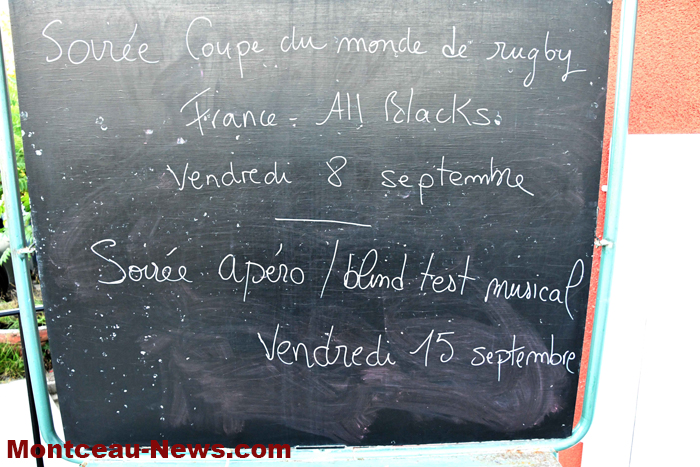 Soirée Coupe du monde de rugby
France - All Blacks.
Vendredi 8 septembre
Soirée apéro / blind test musical
Vendredi 15 septembre
Montceau-News.com